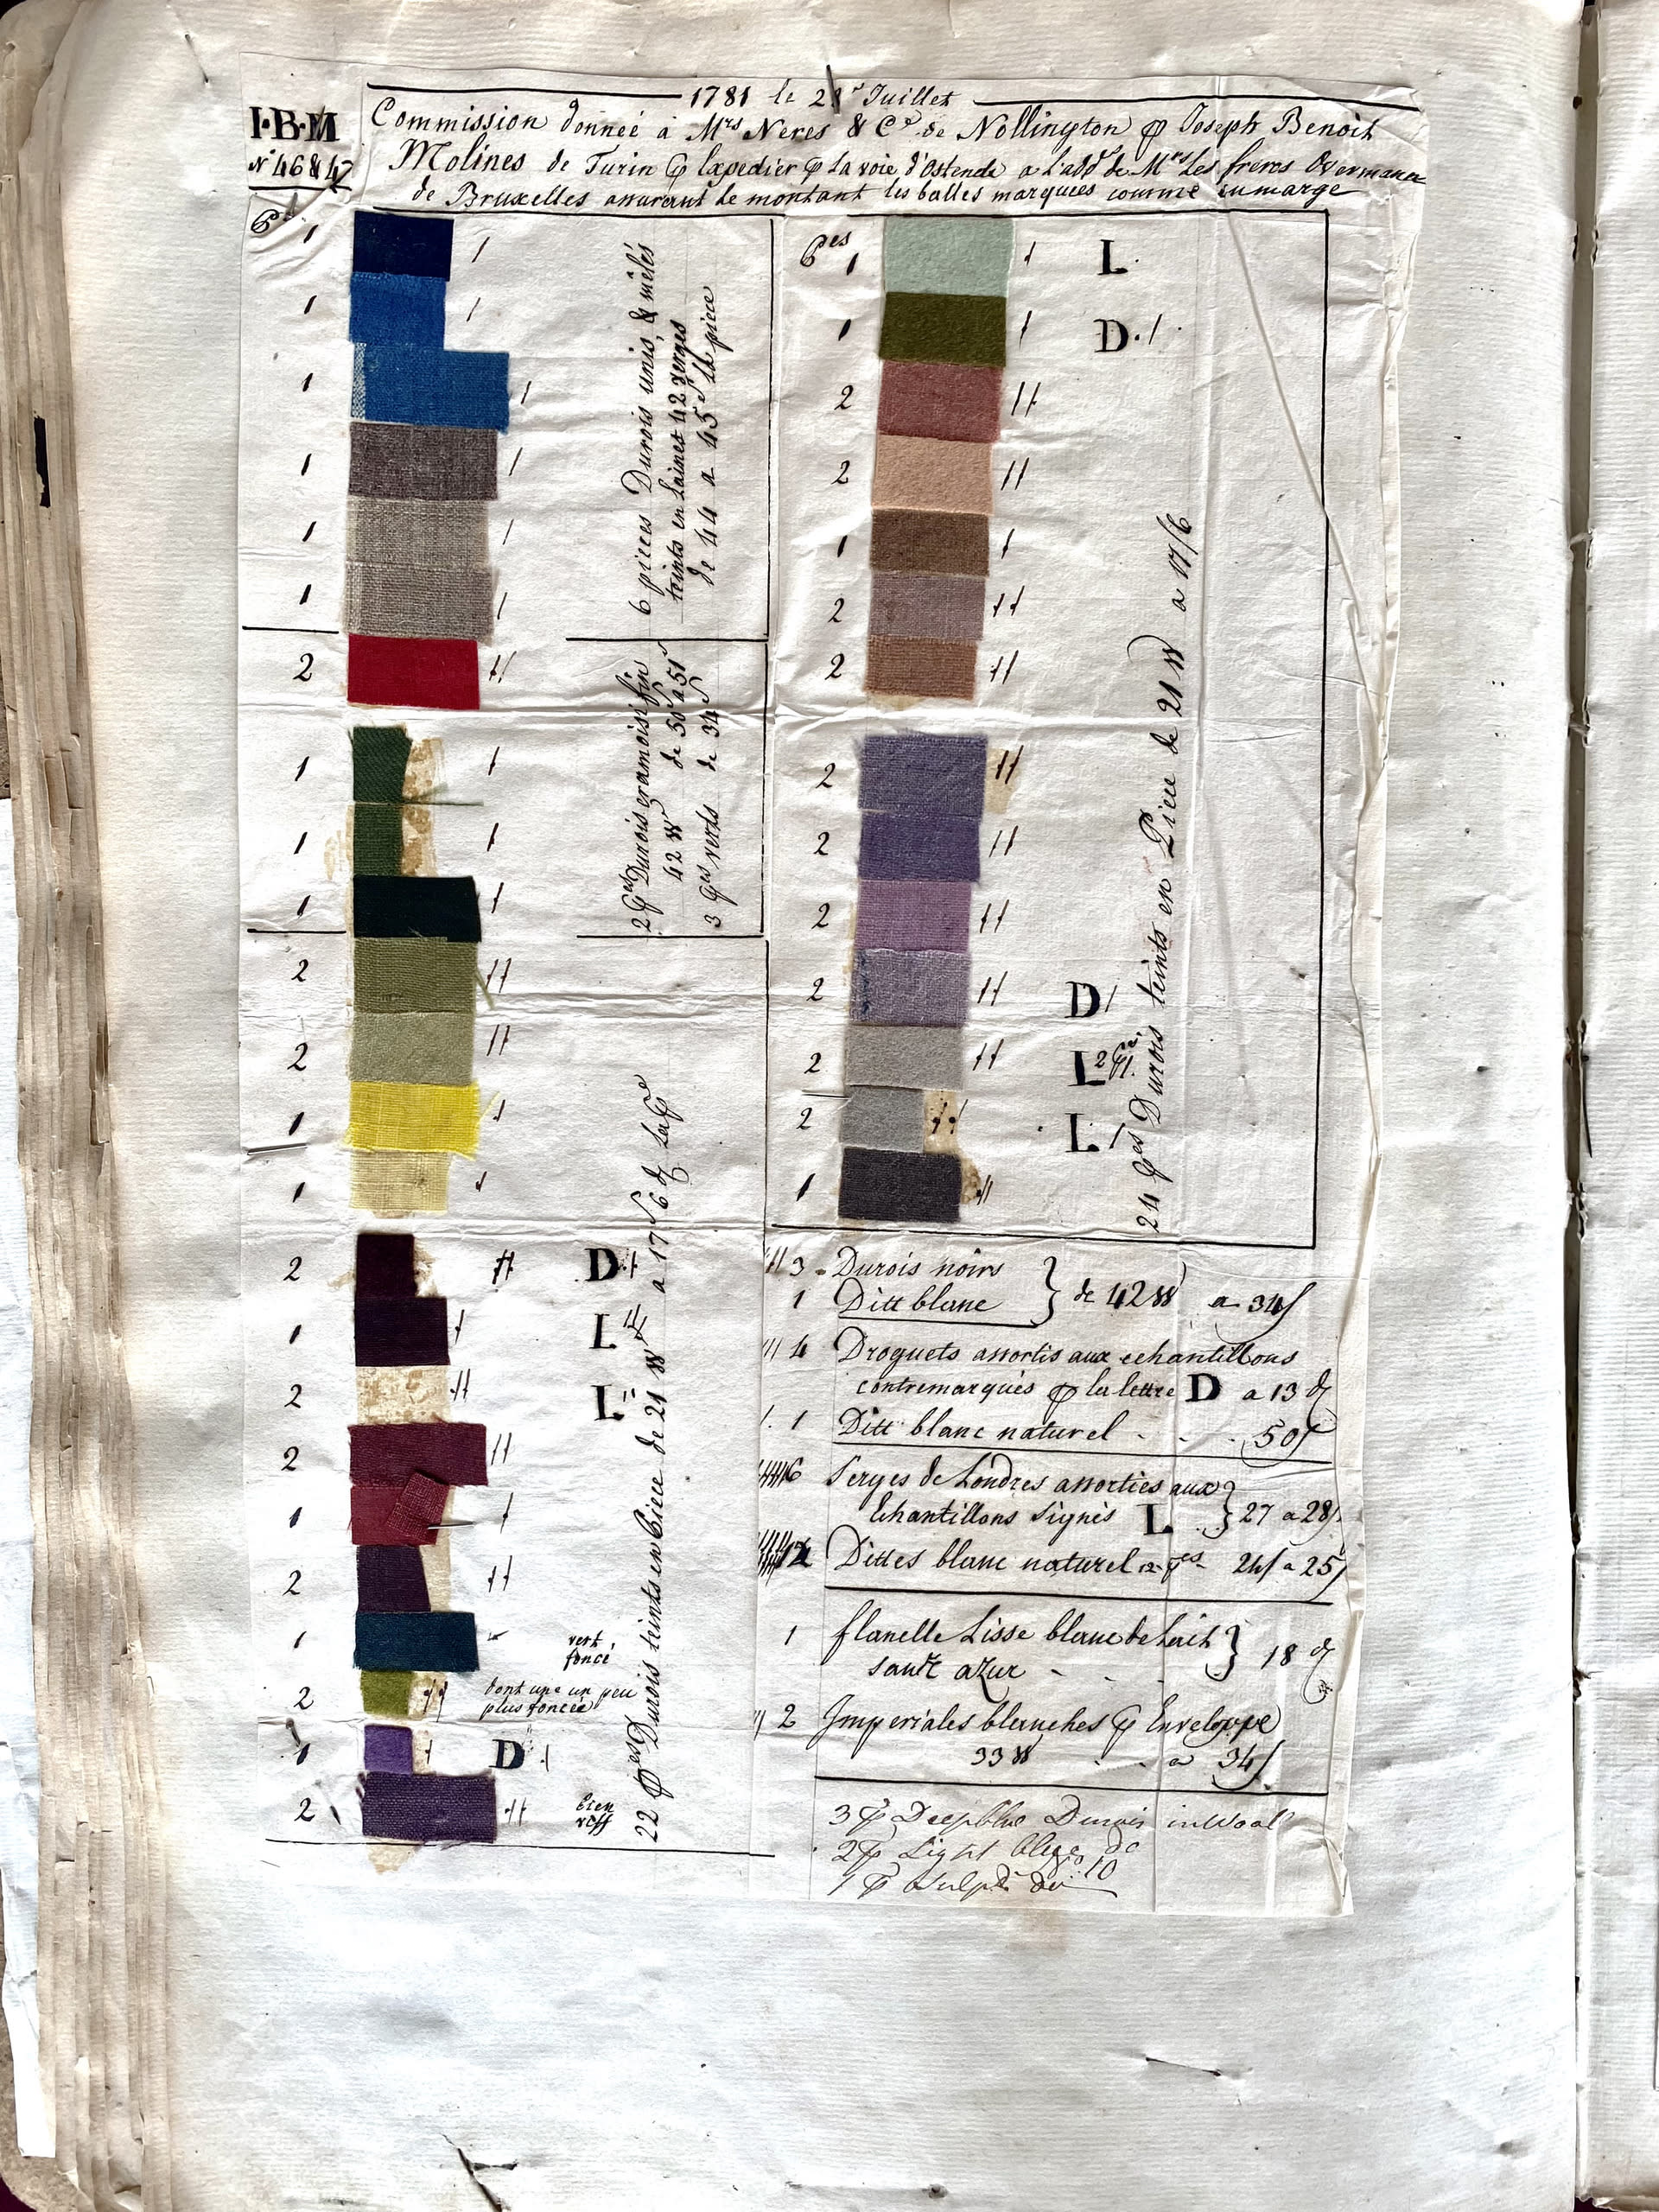 1781 le 21r Juillet
I·B·M
N° 46 & 47
Commission donneé à Mrs Neres & Ce de Nollington ꝑ Joseph Benoit
Molines de Turin ꝑ Expedier ꝑ La voie d'Ostende a l'add de Mrs Les freres Overmann
de Bruxelles assurant le montant les balles marquees comme en marge
1 1
1 1
1 1
1 1
1 1
1 1
6 pieces Durois unis, & mêlés
teints en Laines 42 verges
de 44 a 45 s la piece
2
2 Pes Durois cramoisi fin
42 W de 50 a 51 s
3 Pes verts de 34 s
1 1
1 1
1 1
2
2
1
1
2 D
1 L
2 L
2
1
2
1 vert foncé
2 dont une un peu
plus foncée
1 D
2 bien
viff
22 Pes Durois teints en Piece de 21 W a 17 s 6 d La Pce
Pes
1 L
1 D
2
2
1
2
2
2
2
2
2 D
2 L 2 P
2 L
1
24 Pes Durois teints en Piece de 21 W a 17/6
3 Durois noirs
1 Ditt blanc } de 42 W a 34 s
4 Droguets assortis aux echantillons
contremarqués ꝑ la lettre D a 13 d
1 Ditt blanc naturel - - - 50 s
6 Serges de Londres assorties aux
Echantillons Signés L } 27 a 28 s
12 Dittes blanc naturel 24 s a 25 s
1 flanelle Lisse blanc de Lait
sans azur - - } 18 d
2 Imperiales blanches ꝑ Enveloppe
33 W - - a 34 s
3 ꝑ Deepblue Durois in Wool
2 ꝑ Light blue do
1 ꝑ do